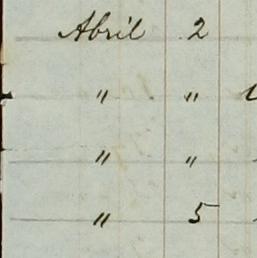 Abril 2
" "
" "
" 5